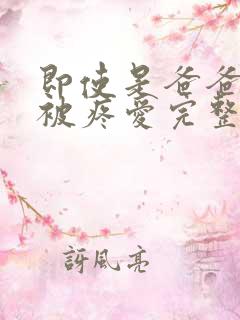 即使是爸爸
被疼爱完整
訝風亮